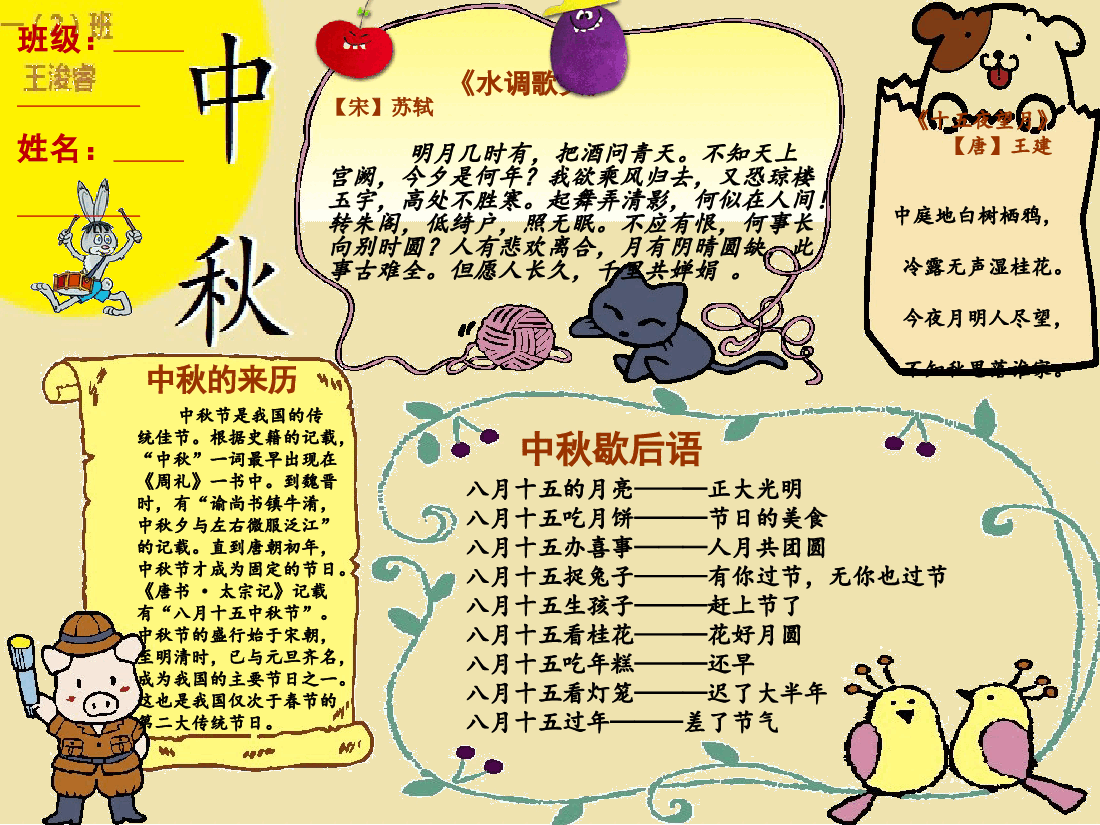 一（2）班
班级：
王浚睿
姓名：
中
秋
《水调歌
【宋】苏轼
明月几时有，把酒问青天。不知天上
宫阙，今夕是何年？我欲乘风归去，又恐琼楼
玉宇，高处不胜寒。起舞弄清影，何似在人间！
转朱阁，低绮户，照无眠。不应有恨，何事长
向别时圆？人有悲欢离合，月有阴晴圆缺，此
事古难全。但愿人长久，千里共婵娟 。
《十五夜望月》
【唐】王建
中庭地白树栖鸦，
冷露无声湿桂花。
今夜月明人尽望，
不知秋思落谁家。
中秋的来历
中秋节是我国的传
统佳节。根据史籍的记载，
“中秋”一词最早出现在
《周礼》一书中。到魏晋
时，有“谕尚书镇牛淆，
中秋夕与左右微服泛江”
的记载。直到唐朝初年，
中秋节才成为固定的节日。
《唐书·太宗记》记载
有“八月十五中秋节”。
中秋节的盛行始于宋朝，
至明清时，已与元旦齐名，
成为我国的主要节日之一。
这也是我国仅次于春节的
第二大传统节日。
中秋歇后语
八月十五的月亮———正大光明
八月十五吃月饼———节日的美食
八月十五办喜事———人月共团圆
八月十五捉兔子———有你过节，无你也过节
八月十五生孩子———赶上节了
八月十五看桂花———花好月圆
八月十五吃年糕———还早
八月十五看灯笼———迟了大半年
八月十五过年———差了节气